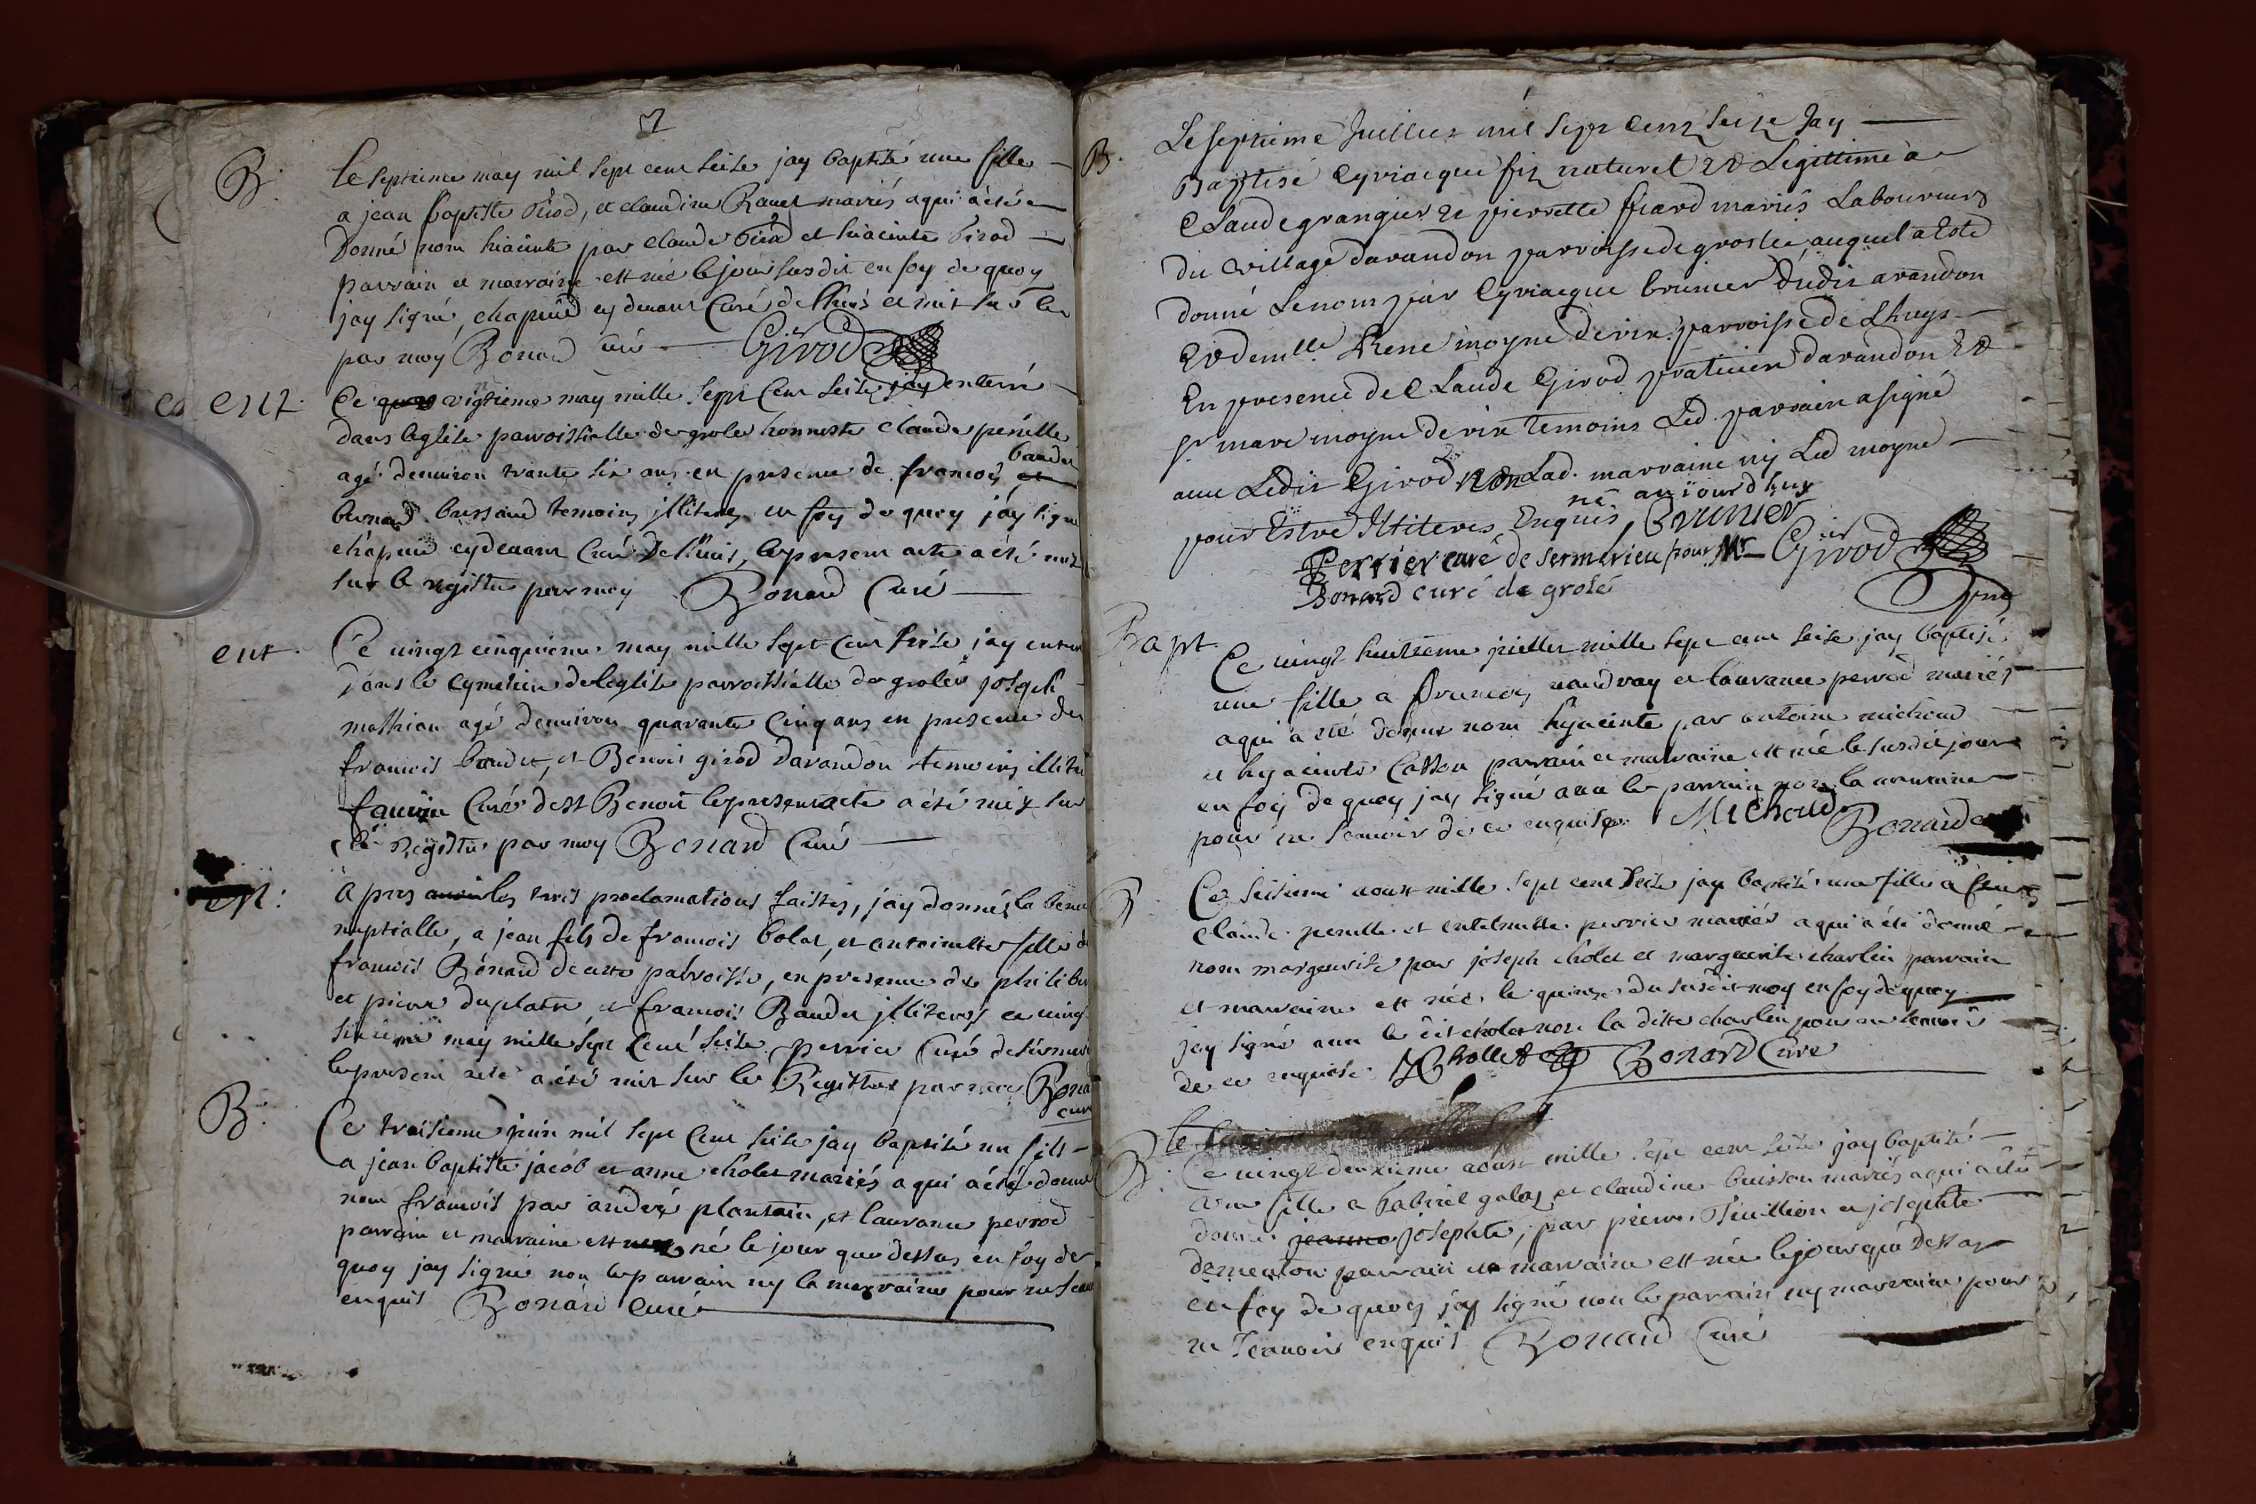 B.
le septieme may mil sept cent seise jay baptisé une fille
a jean baptiste Girod, et claudine Ravet mariés aqui a été
Donné nom hiacinte par claude Girod et hiacinte Girod
parrain et marraine est née le jour susdit en foy de quoy
jay signé, chapuis cy devant Curé de lhuis et mis sur le
par moy Bonard curé Girod
ent.
Ce vigtieme may mille sept cent seise jay enterré
dans leglise parroissialle de grolee honneste claude penelle
agé denviron trante six ans en presence de francois baudet
bernard bressand temoins illiteres en foy de quoy jay signé
chapuis cy devant Curé De lhuis, le present acte a été mis
sur le registre par moy Bonard Curé
ent.
Ce vingt cinquieme may mille sept cent seise jay enterré
dans le cymetiere de leglise parroissialle de grolée joseph
mathian agé denviron quarante cinq ans en presence de
francois baudet, et Benoit girod davandon temoins illite
Curé de st Benoit le present acte a été mix sur
le Registre par moy Bonard Curé
Apres les trois proclamations faittes, jay donnés la bene
nuptialle, a jean fils de francois bolat, et antoinette fille de
francois Bonard de cette parroisse, en presence de philibe
et pierre duplatre, et francois Baudet illiteres ce vingt
sixieme may mille sept Cent seise perrier Curé de sermer
le present acte a été mis sur le Registre par moy Bona
curé
B.
Ce troisieme juin mil sept Cent seise jay baptisé un fils
a jean baptiste jacob et anne cholet mariés a qui a été donné
nom francois par andré plantain, et laurance perrod
parrain et marraine est né le jour que dessus en foy de
quoy jay signé non le parrain ny la marraine pour ne scav
enquis Bonard Curé
B.
Le septieme Juillier mil sept cent seize Jay
Baptisé Cyriacque fiz naturel et Legittime a
Claude grangier et pierrette fiard mariés Laboureurs
du village davandon parroisse de groslee auquel a Este
donné Le nom par Cyriacque brunier dudit avandon
et demlle Rene moyne de vix parroisse de Lhuys
En presence de Claude Girod praticien davandon et
sr marc moyne de vix Temoins Led. parrain a signé
avec Ledit Girod non Lad. marraine ny Led moyne
pour Estre Illiteres Enquis, né aujourdhuy
Brunier
Perrier curé de sermerieu pour Mr Girod
Bonard curé de grolé
Bapt
Ce vingt huitieme juillet mille sept cent seise jay baptisé
une fille a francois vaudray et laurance perrod mariés
aqui a été donné nom hyacinte par antoine michoud
et hyacinte Casson parrain et marraine est née le susdit jour
en foy de quoy jay signé avec le parrain non la marraine
pour ne scavoir de ce enquise Michoud Bonard c
B
Ce seisieme aoust mille sept cent seise jay baptisé une fille a feux
claude penelle et antelmette perrier mariés a qui a été donné
nom margueritte par joseph cholet et marguerite charlin parrain
et marraine est née le quinze du susdit moy en foy de quoy
jay signé avec le dit cholet non la ditte charlin pour ne scavoir
de ce enquise JChollet Bonard Cure
le
B.
Ce vingt deuxieme aoust mille sept cent seise jay baptisé
une fille a Gabriel galay et claudine buisson mariés aqui a été
donné josephte, par pierre Teuillion et josephte
demeulon parrain et marraine est née le jour que dessus
en foy de quoy jay signé non le parrain ny marraine pour
ne scavoir enquis Bonard Curé